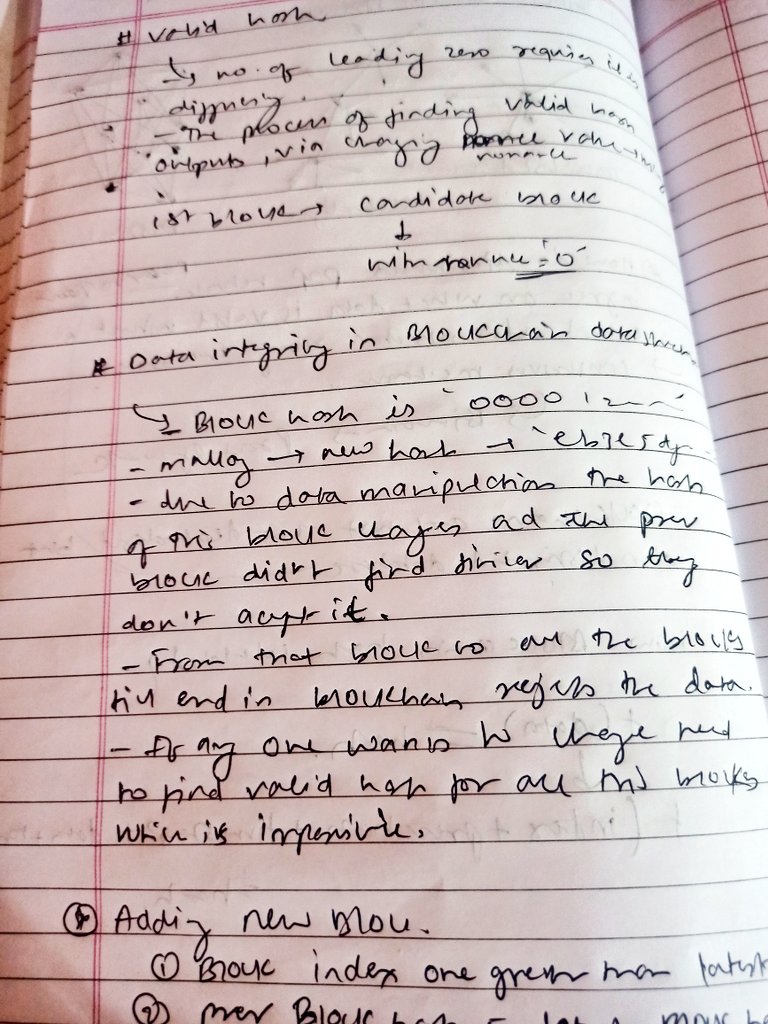 # valid hash
↳ no. of leading zero requires it is
- The process of finding valid hash
outputs, via changing nonance value
1st block → candidate block
↓
with nonnce = '0'
* Data integrity in Blockchain data
↳ - Block hash is `0000 12
- → new hash → `
- due to data manipulation the hash
of this block chages ad the prev
block didn't find similer so they
don't acept it.
- From that block to all the blocks
till end in blockchain rejects the data.
- If any one wants to change need
to find valid hash for all this blocks
which is impossible.
Adding new Block.
① Block index one greater than latest
② prev Block hash =